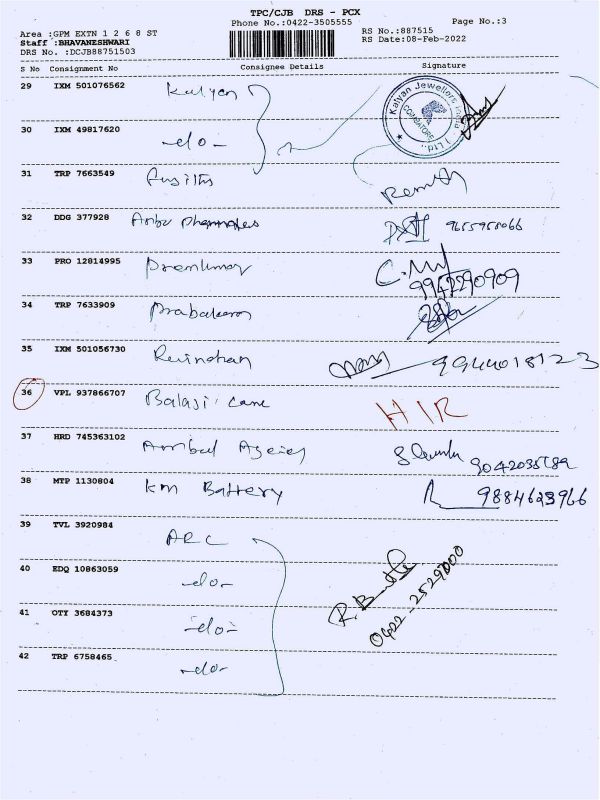 TPC/CJB DRS - PCX
Phone No.:0422-3505555
Page No.:3
Area :GPM EXTN 1 2 6 8 ST
Staff :BHAVANESHWARI
DRS No. :DCJB88751503
RS No.:887515
RS Date:08-Feb-2022
S No Consignment No Consignee Details Signature
29 IXM 501076562 Kalyan
Kalyan Jewellers India Ltd.
COIMBATORE
30 IXM 49817620 -do-
31 TRP 7663549
32 DDG 377928
33 PRO 12814995 Premkumar
9942290909
34 TRP 7633909 Prabakaran
35 IXM 501056730
36 VPL 937866707 Balaji cane HIR
37 HRD 745363102
38 MTP 1130804 KM Battery 9884623966
39 TVL 3920984 ARC
40 EDQ 10863059 -do-
41 OTY 3684373 -do-
0422-2529000
42 TRP 6758465 -do-